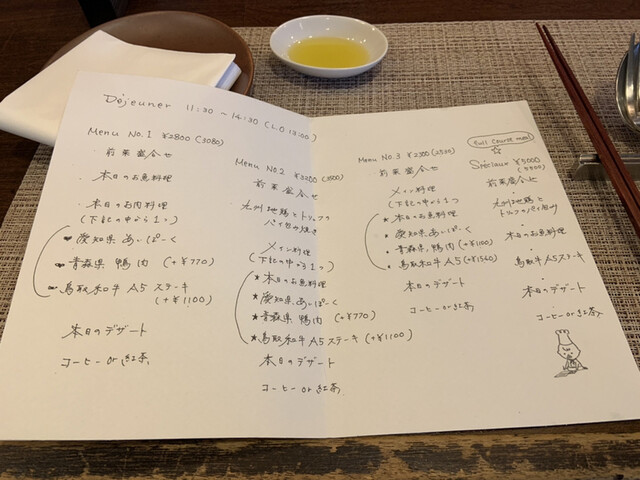 Déjeuner 11:30 ~ 14:30 (L.O.13:00)
Menu No.1 ¥2800 (3080)
・前菜盛合せ
・本日のお魚料理
・本日のお肉料理
(下記の中から1つ)
愛知県あいぽーく
青森県 鴨肉 (+¥770)
鳥取和牛A5 ステーキ
(+¥1100)
本日のデザート
コーヒー or 紅茶
Menu No.2 ¥3200
前菜盛合せ
九州地鶏とトリュフの
パイ包み焼き
メイン料理
(下記の中から1つ)
★本日のお魚料理
★愛知県あいぽーく
★青森県 鴨肉 (+¥770)
★鳥取和牛A5ステーキ (+¥1100)
本日のデザート
コーヒー or 紅茶
Menu No.3 ¥2300 (2530)
前菜盛合せ
メイン料理
(下記の中から1つ
★本日のお魚料理
★愛知県あいぽーく
★青森県鴨肉 (+¥1100)
★鳥取和牛A5 (+¥1540)
本日のデザート
コーヒー or 紅茶
full course menu
☆
Spéciaux ¥5000
(5500)
前菜盛合せ
九州地鶏と
トリュフパイ包み
本日のお魚料理
鳥取和牛A5ステーキ
本日のデザート
コーヒー or 紅茶